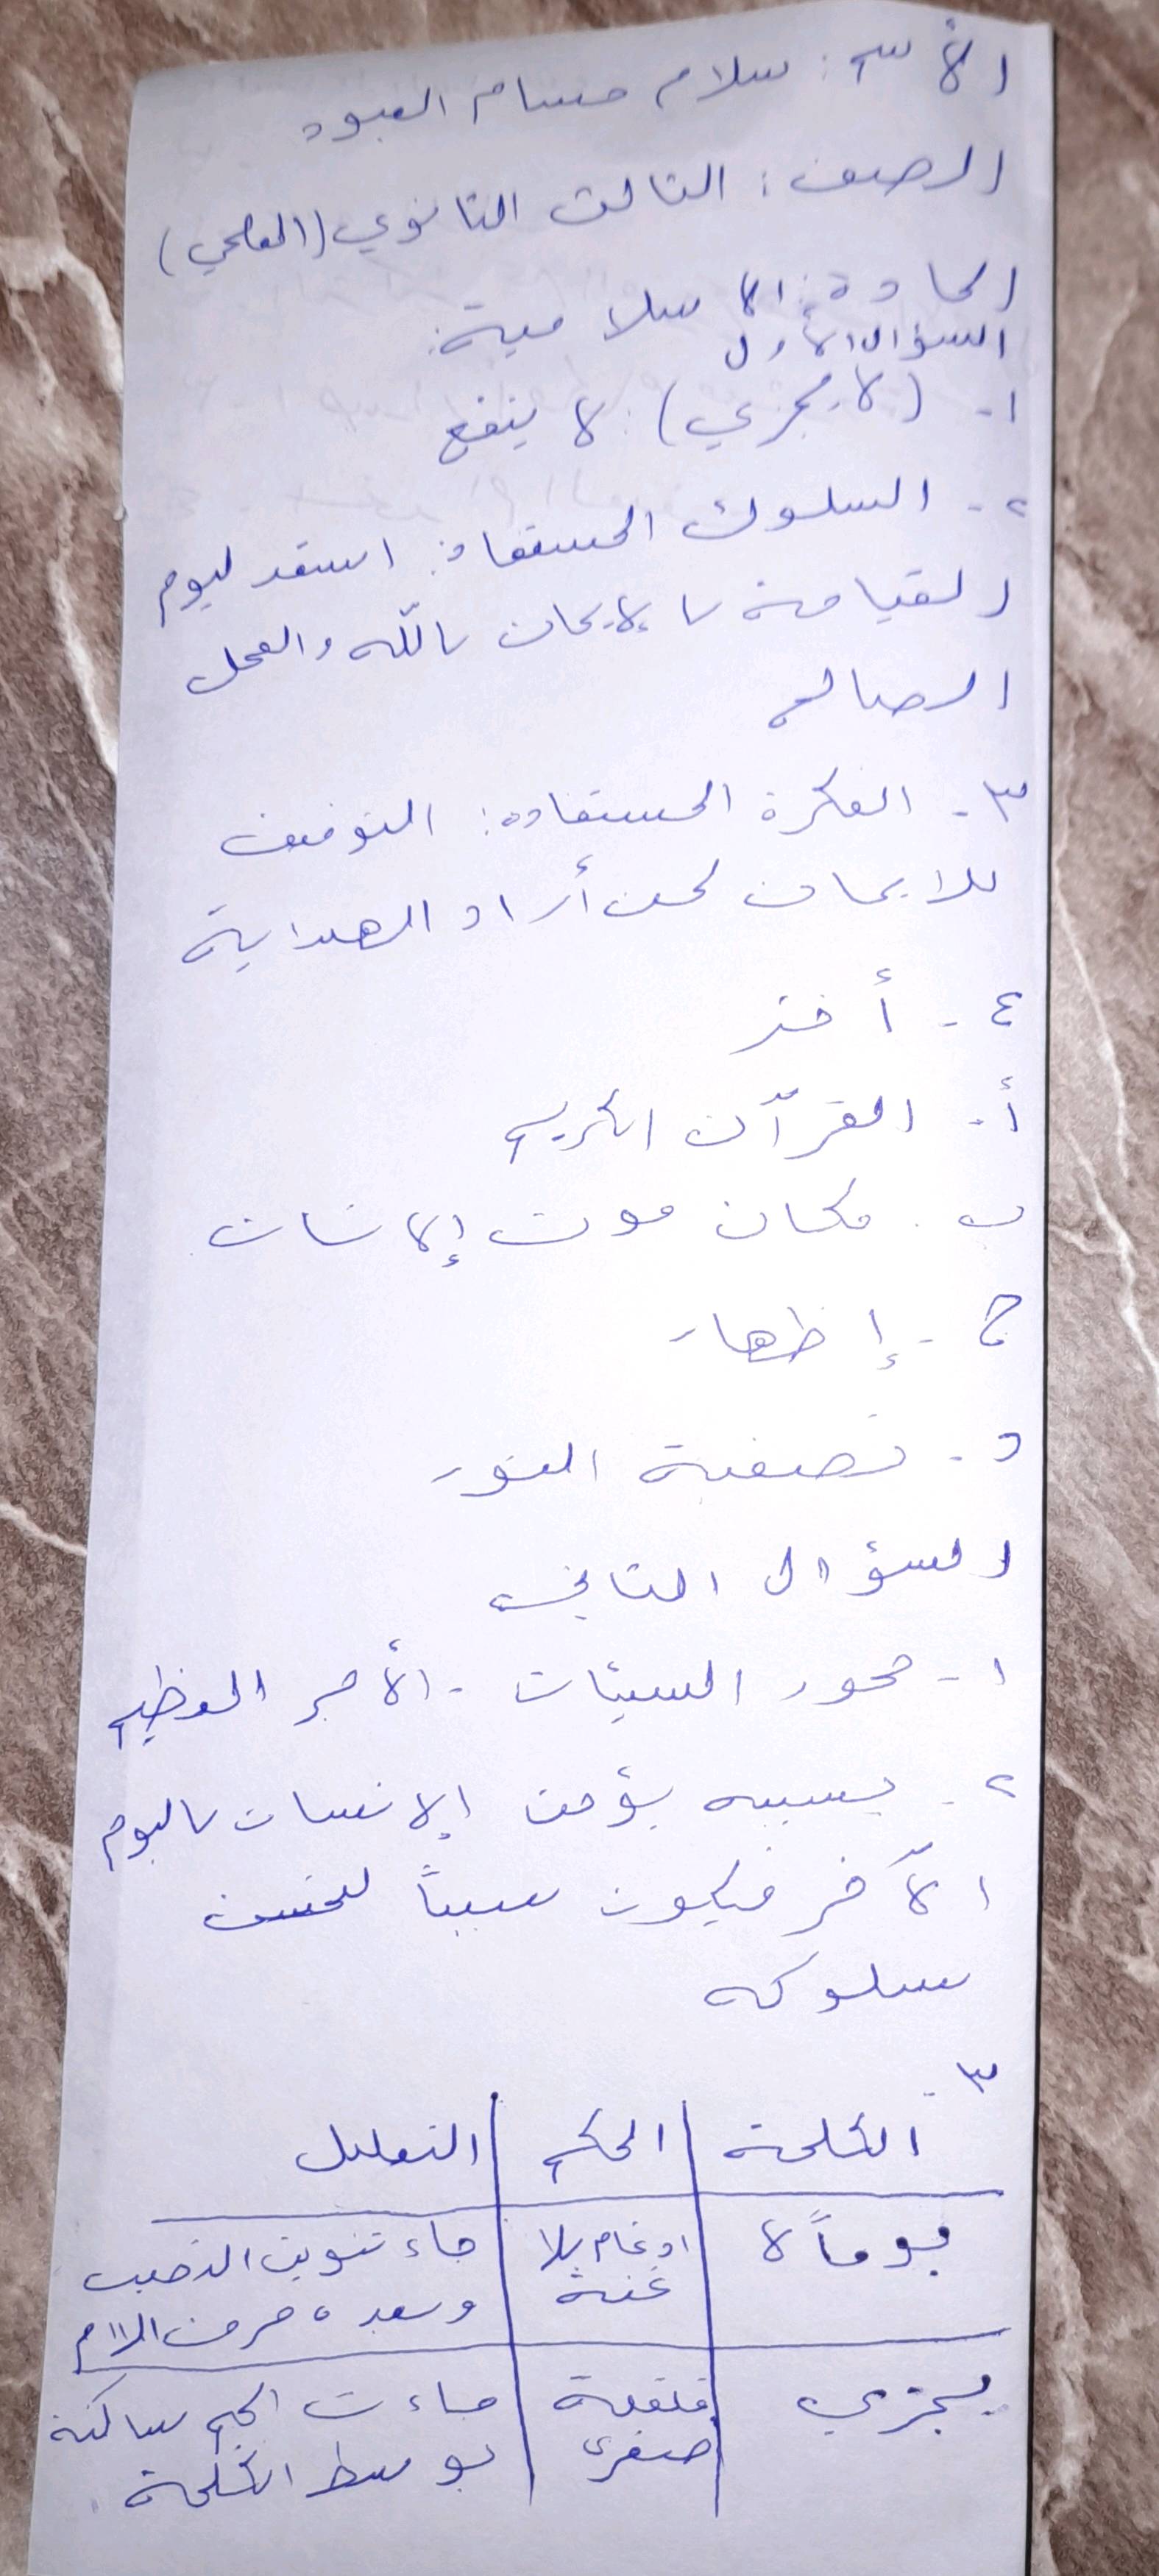 الأسم: سلام حسام العبود
الصف: الثالث الثانوي (العلمي)
المادة: الاسلامية:
السؤال الأول
١- (لا يجزي): لا ينفع
٢- السلوك المستفاد: استعد ليوم
القيامة بالإيمان بالله والعمل
الصالح
٣- الفكرة المستفادة: التوفيق
للايمان لمن أراد الهداية
٤- أختر
أ- القرآن الكريم
ب- مكان موت إلانسان
ج- إظهار
د- تصفية
السؤال الثاني
١- محور السيئات - الأجر العظيم
٢- بسببه يؤمن الإنسان باليوم
الآخر فيكون سبباً لحسن
سلوكه
٣-
الكلمة | الحكم | التعليل
يوماً لا | ادغام بلا | جاء تنوين النصب
غنة | وبعده حرف اللام
يجزي | قلقلة | جاءت الجيم ساكنة
صغرى | بوسط الكلمة